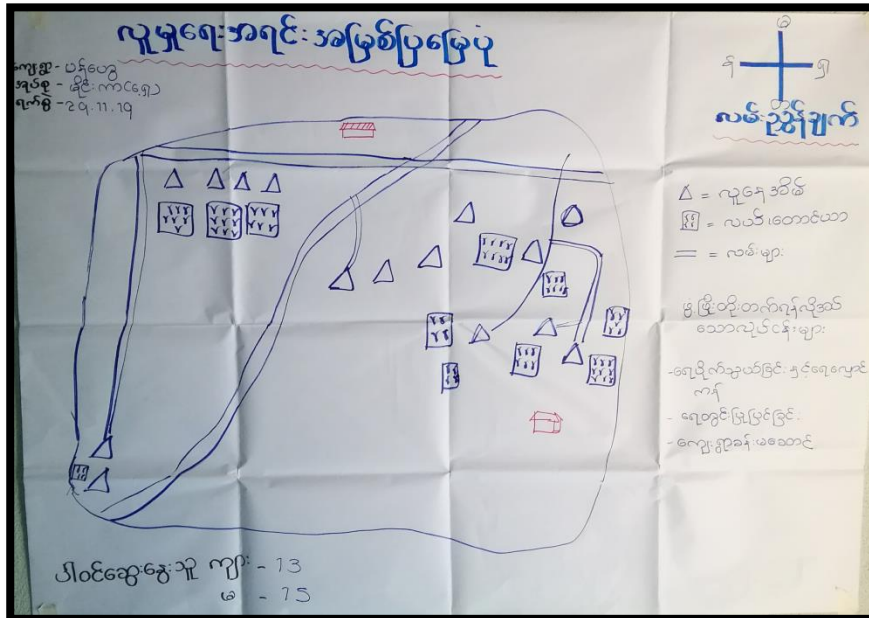 လူမှုရေးအရင်းအမြစ်ပြမြေပုံ
ကျေးရွာ - ပန်ဟွေ
အုပ်စု - မိုင်းကာ(ရှေ့)
ရက်စွဲ - 29.11.19
မ
န
ရှ
တ
လမ်းညွှန်ချက်
= လူနေအိမ်
= လယ်/တောင်ယာ
= လမ်းများ
ဖွံ့ဖြိုးတိုးတက်ရန်လိုအပ်
သောလုပ်ငန်းများ
- ရေပိုက်သွယ်ခြင်း နှင့်ရေလှောင်
ကန်
- ရေတွင်းပြုပြင်ခြင်း
- ကျေးရွာခန်းမဆောင်
ပါဝင်ဆွေးနွေးသူ ကျား - 13
မ - 15